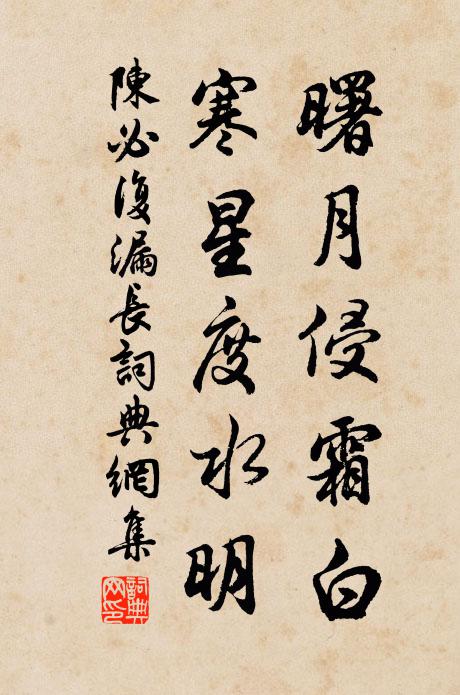 曙月侵霜白
寒星度水明
陳必復漏長詞典網集
詞典
网印